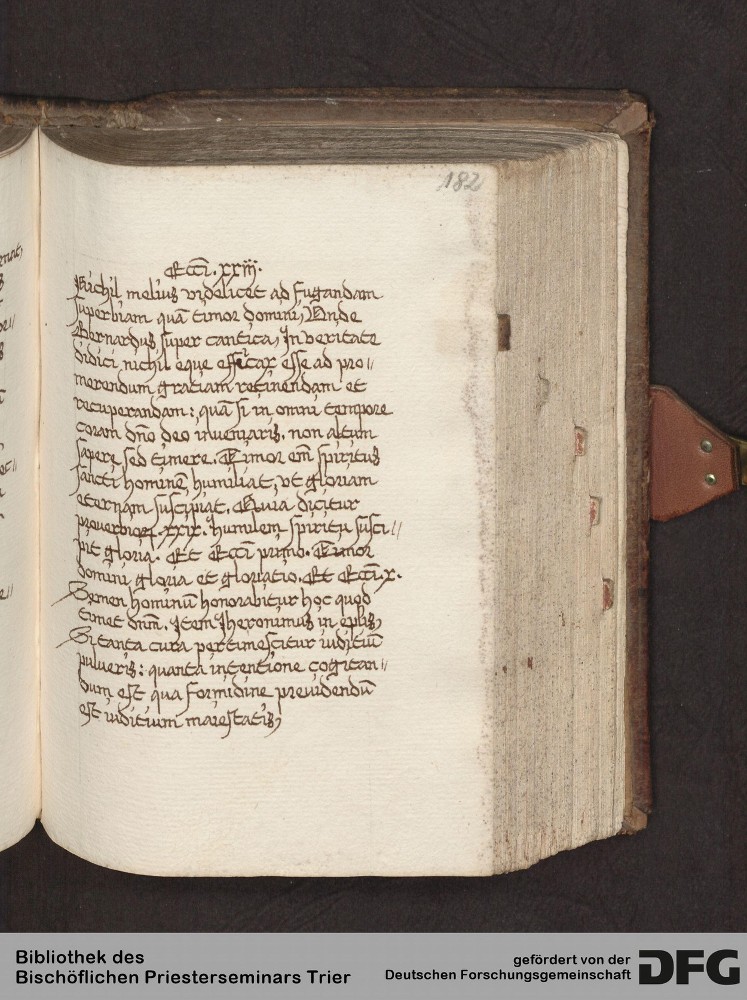 182
Eccī. xxiij.
Nichil melius videlicet ad fugandam
superbiam quā timor domini, Unde
Bernardus super cantica, In veritate
didici nichil eque efficax esse ad pro//
merendum gratiam retinendam et
recuperandam: quā si in omni tempore
coram dño deo inveniaris. non altum
sapere sed timere. Timor em̄ spiritus
sancti hominē humiliat, vt gloriam
eternam suscipiat. Quia dicitur
proverbioꝝ. xxix. humilem spiritu susci//
pit gloria. Et Eccī primo. Timor
domini gloria et gloriatio. Et Eccī. x.
Semen hominū honorabitur hoc quod
timet dnm̄. Item Jheronimus in eplis,
Si tanta cura pertimescitur iuditiū
pulveris: quanta intentione cogitan//
dum est qua formidine previdendū
est iuditium maiestatis,
Bibliothek des
Bischöflichen Priesterseminars Trier
gefördert von der
Deutschen Forschungsgemeinschaft
DFG